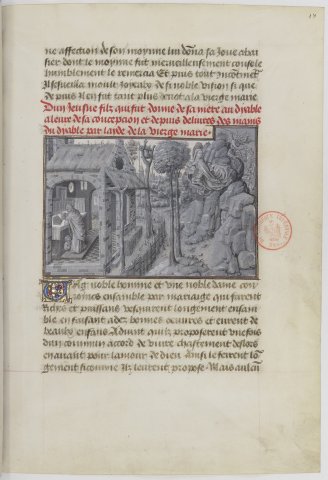 ne affection de son moynne lui donna sa Ioue a bai
sier dont le moynne fut merveilleusement console
humblement le remercia Et puis tout Incontinent
Il sesueilla moult Ioyeulx de si noble vision si que
depuis Il en fut tant plus deuot a la vierge marie
Dun Ieusne filz qui fut donne de sa mere au dyable
a leure de sa concepcion et depuis deliure des mains
du dyable par laide de la vierge marie
Ung noble homme et vne noble dame con
ioincts ensamble par mariage qui furent
Riches et puissans vesquirent longement ensam
ble en faisant adez bonnes oeuures et eurent de
beaulx enfans Aduint quilz proposerent vne fois
dun commun accord de viure chastement deslors
en auant pour lamour de dieu Ainsi le feirent lon
gement si comme Ilz leurent propose. Mais aulcu